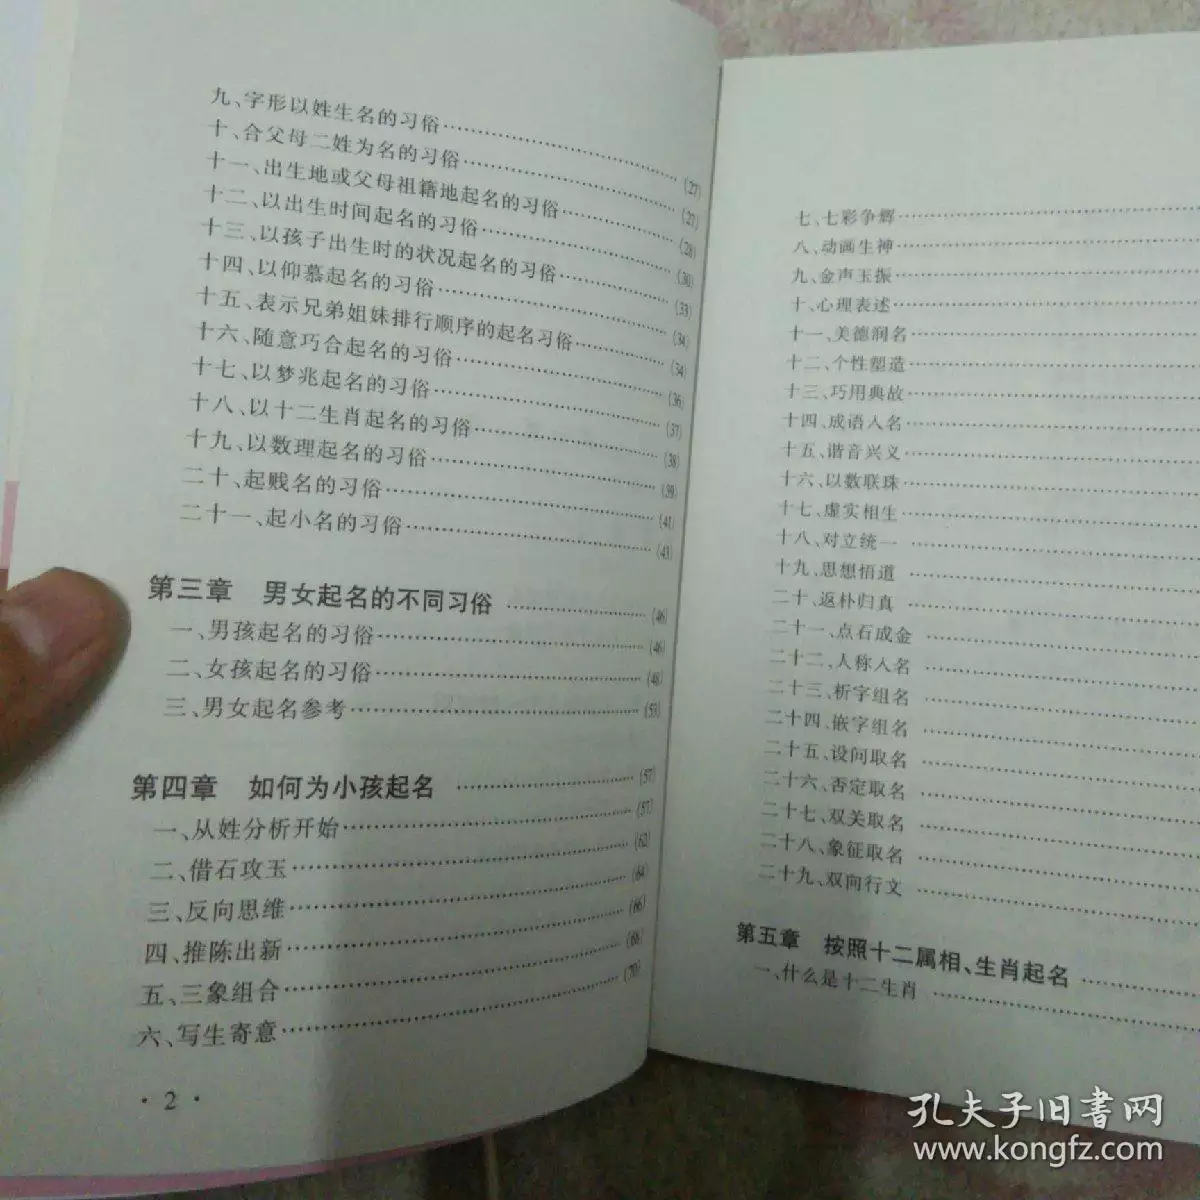 九、字形以姓生名的习俗……(27)
十、合父母二姓为名的习俗……(27)
十一、出生地或父母祖籍地起名的习俗……(28)
十二、以出生时间起名的习俗……(30)
十三、以孩子出生时的状况起名的习俗……(33)
十四、以仰慕起名的习俗……(34)
十五、表示兄弟姐妹排行顺序的起名习俗……(34)
十六、随意巧合起名的习俗……(36)
十七、以梦兆起名的习俗……(37)
十八、以十二生肖起名的习俗……(38)
十九、以数理起名的习俗……(39)
二十、起贱名的习俗……(41)
二十一、起小名的习俗……(43)
第三章 男女起名的不同习俗……(46)
一、男孩起名的习俗……(46)
二、女孩起名的习俗……(48)
三、男女起名参考……(53)
第四章 如何为小孩起名……(57)
一、从姓分析开始……(57)
二、借石攻玉……(62)
三、反向思维……(64)
四、推陈出新……(66)
五、三象组合……(68)
六、写生寄意……(70)
·2·
七、七彩争辉……
八、动画生神……
九、金声玉振……
十、心理表述……
十一、美德润名……
十二、个性塑造……
十三、巧用典故……
十四、成语人名……
十五、谐音兴义……
十六、以数联珠……
十七、虚实相生……
十八、对立统一……
十九、思想悟道……
二十、返朴归真……
二十一、点石成金……
二十二、人称人名……
二十三、析字组名……
二十四、嵌字组名……
二十五、设问取名……
二十六、否定取名……
二十七、双关取名……
二十八、象征取名……
二十九、双向行文……
第五章 按照十二属相、生肖起名……
一、什么是十二生肖……
孔夫子旧书网
www.kongfz.com